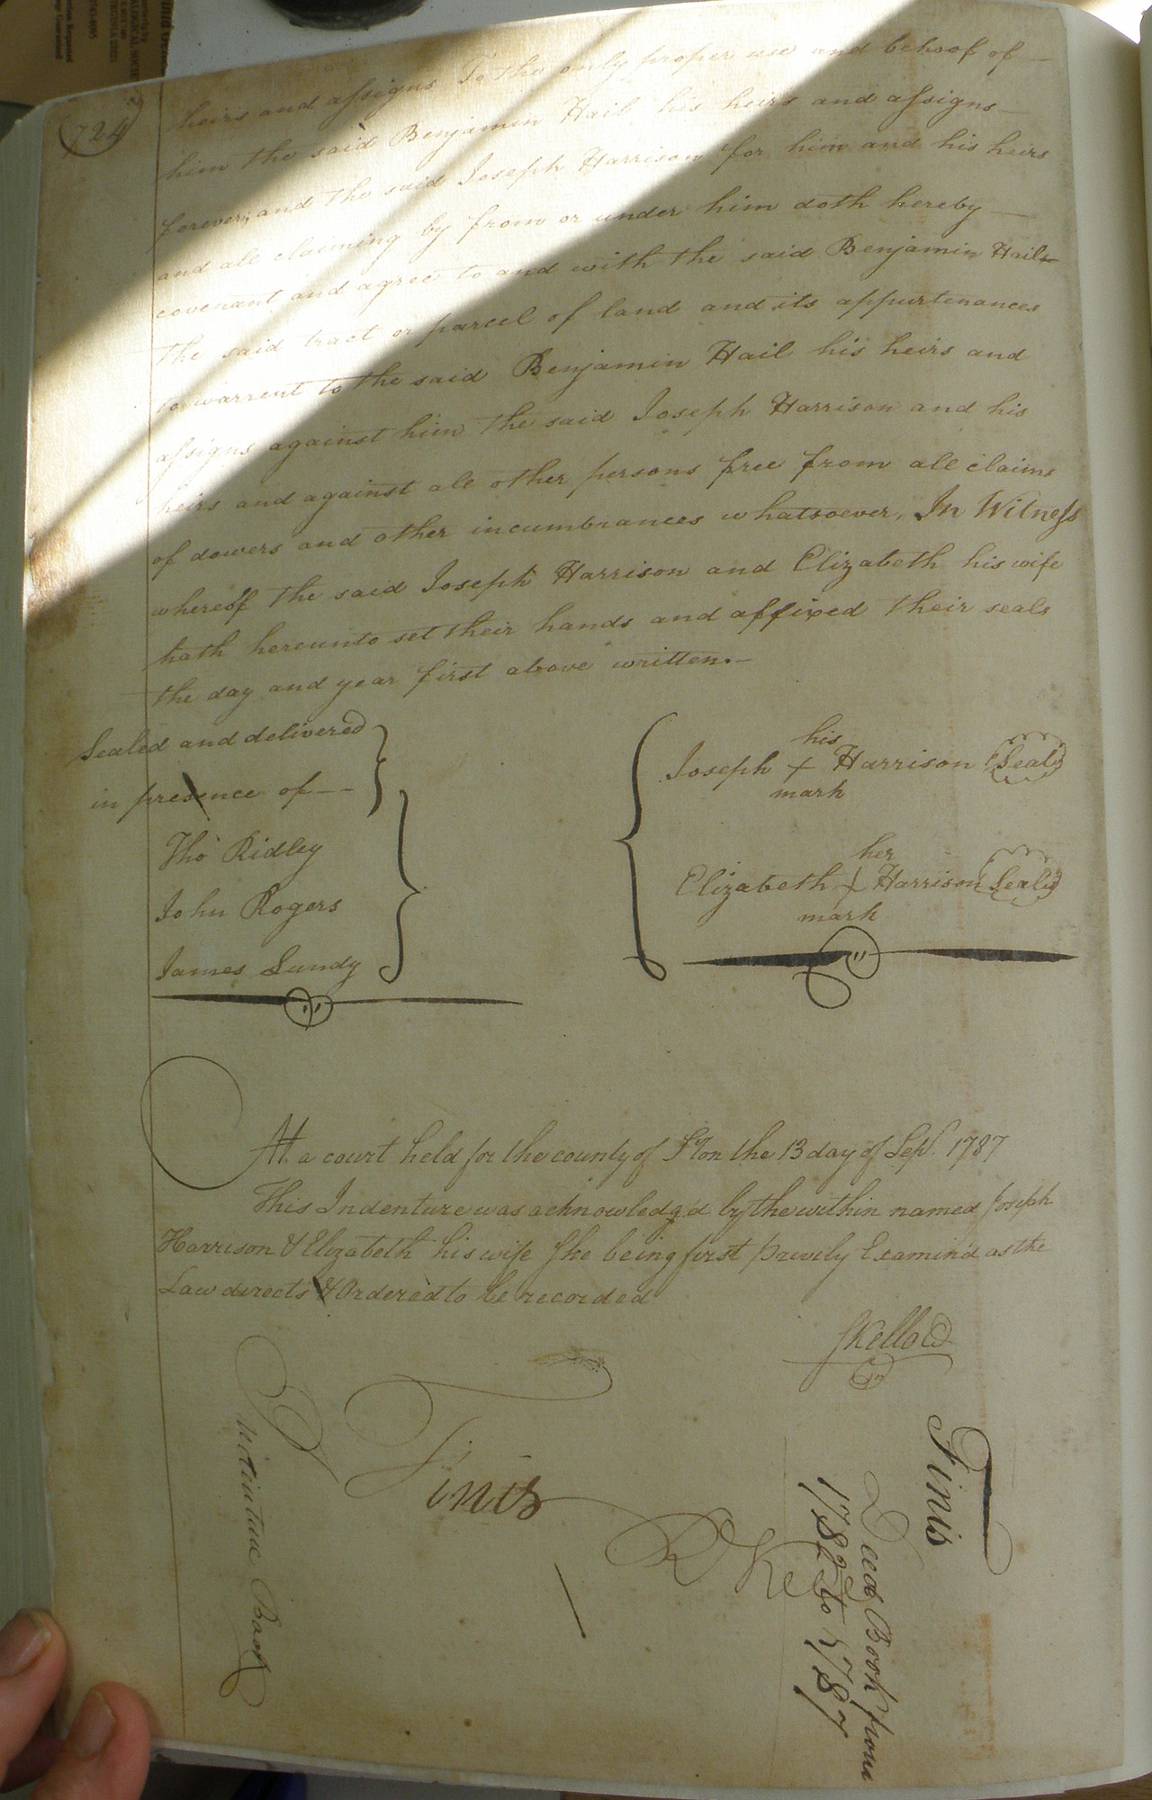 724
heirs and assigns To the only proper use and behoof of
him the said Benjamin Hail his heirs and assigns
forever, and the said Joseph Harrison for him and his heirs
and all claiming by from or under him doth hereby
covenant and agree to and with the said Benjamin Hail
the said tract or parcel of land and its appurtenances
to warrent to the said Benjamin Hail his heirs and
assigns against him the said Joseph Harrison and his
heirs and against all other persons free from all claims
of dowers and other incumbrances whatsoever, In Witness
whereof the said Joseph Harrison and Elizabeth his wife
hath hereunto set their hands and affixed their seals
the day and year first above written.
Sealed and delivered
in presence of
Tho Ridley
John Rogers
James Lundy
his
Joseph + Harrison Seal
mark
her
Elizabeth + Harrison Seal
mark
At a court held for the county of S°ton the 13 day of Sept. 1787
This Indenture was acknowledg'd by the within named Joseph
Harrison & Elizabeth his wife She being first privily Examin'd as the
Law directs & Ordered to be recorded
SKello CC
Finis
Finis
Deed Book from
1782 to 1787